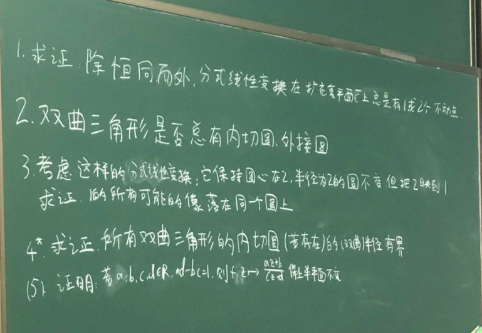 1. 求证. 除恒同而外, 分式线性变换在扩充复平面C̄上总是有1或2个不动点.
2. 双曲三角形是否总有内切圆、外接圆
3. 考虑这样的分式线性变换: 它保持圆心在2, 半径为2的圆不变但把2映到1
求证. 1的所有可能的像落在同一个圆上
4*. 求证. 所有双曲三角形的内切圆(若存在)的(双曲)半径有界
(5) 证明: 若a,b,c,d∈R, ad-bc=1, 则f: z↦(az+b)/(cz+d) 保上半平面不变